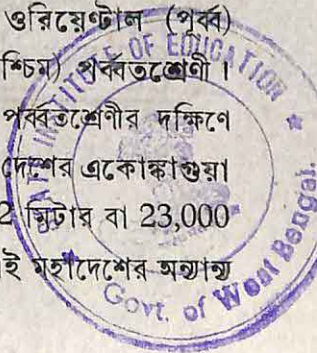 ওরিয়েণ্টাল (পূর্ব্ব
শ্চিম) পর্ব্বতশ্রেণী।
পর্ব্বতশ্রেণীর দক্ষিণে
দেশের একোঙ্কাগুয়া
2 মিটার বা 23,000
ই মহাদেশের অন্যান্য
INSTITUTE OF EDUCATION
Govt. of West Bengal.